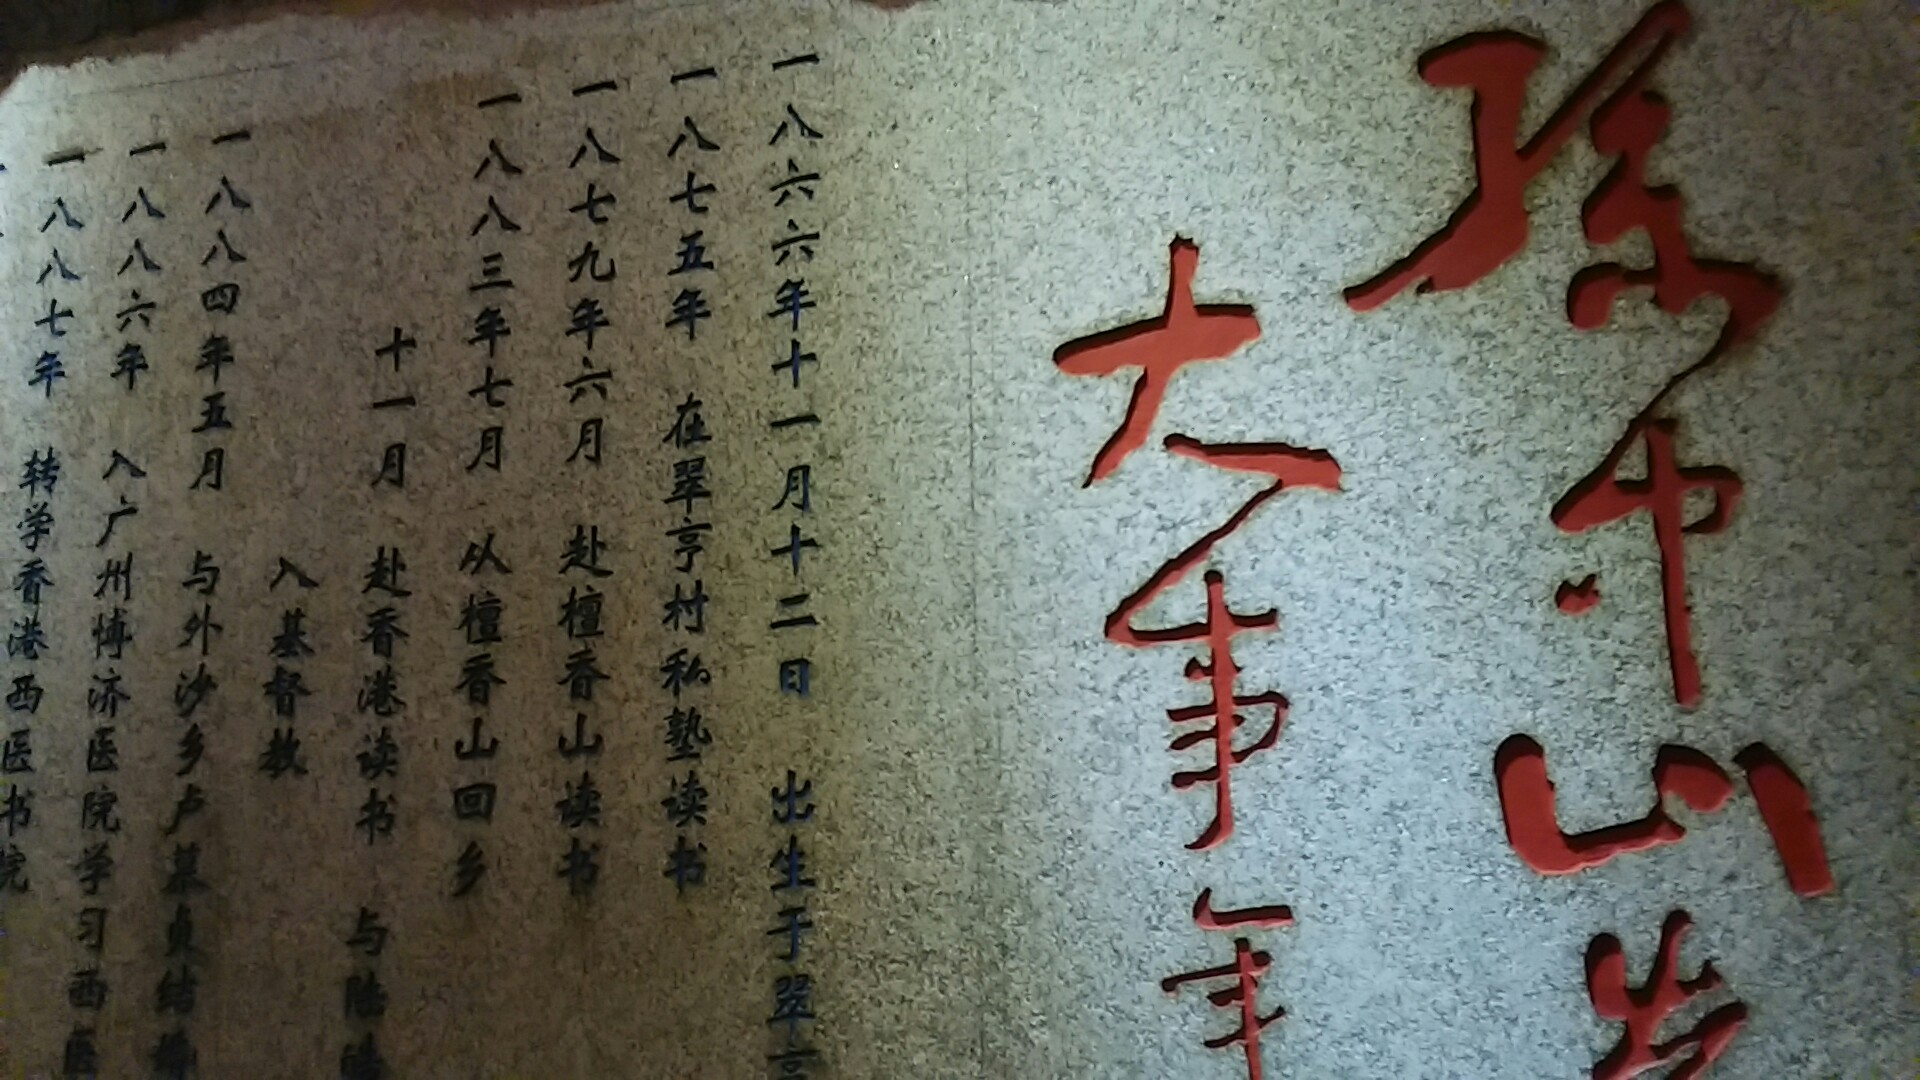 孫中山生
大事年
一八六六年十一月十二日 出生于翠亨
一八七五年 在翠亨村私塾读书
一八七九年六月 赴檀香山读书
一八八三年七月 从檀香山回乡
十一月 赴香港读书 与陆皓
入基督教
一八八四年五月 与外沙乡卢慕贞结婚
一八八六年 入广州博济医院学习西医
一八八七年 转学香港西医书院